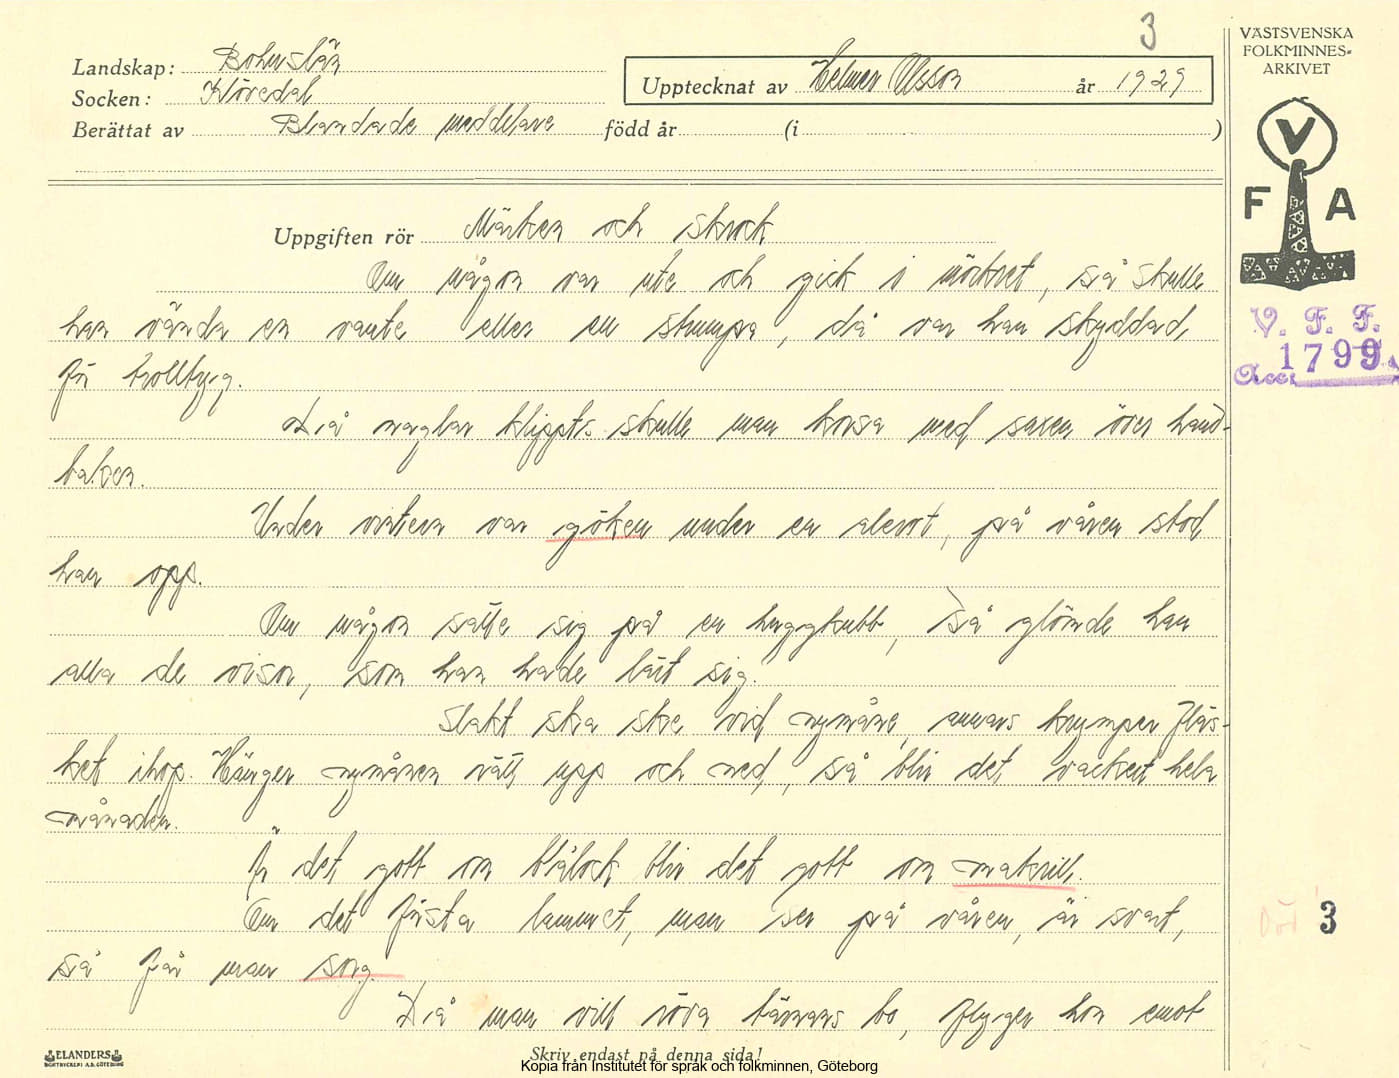 3
VÄSTSVENSKA
FOLKMINNES-
ARKIVET
Landskap: Bohuslän
Upptecknat av Helmer Olsson år 1929
Socken: Klövedal
Berättat av Blandade meddelare född år (i )
V
F A
Uppgiften rör Märken och skrock
Om någon var ute och gick i mörkret, så skulle
han vända en vante eller en strumpa, då var han skyddad
för trolltyg.
V. F. F.
Acc. 1799
Då naglar klippts skulle man korsa med saxen över hand-
baken.
Under vintern var göken under en alerot, på våren stod
han opp.
Om någon satte sig på en huggkubb, så glömde han
alla de visor, som han hade lärt sig.
Slakt ska ske vid nymåne, annars krymper fläs-
ket ihop. Hänger nymånen rätt upp och ned, så blir det vackert hela
månaden.
Är det gott om blålock blir det gott om makrill.
Om det första lammet, man ser på våren, är svart,
3
så får man sorg.
Då man vill röra tärnans bo, flyger hon emot
ELANDERS
BOKTRYCKERI A.B. GÖTEBORG
Skriv endast på denna sida!
Kopia från Institutet för språk och folkminnen, Göteborg